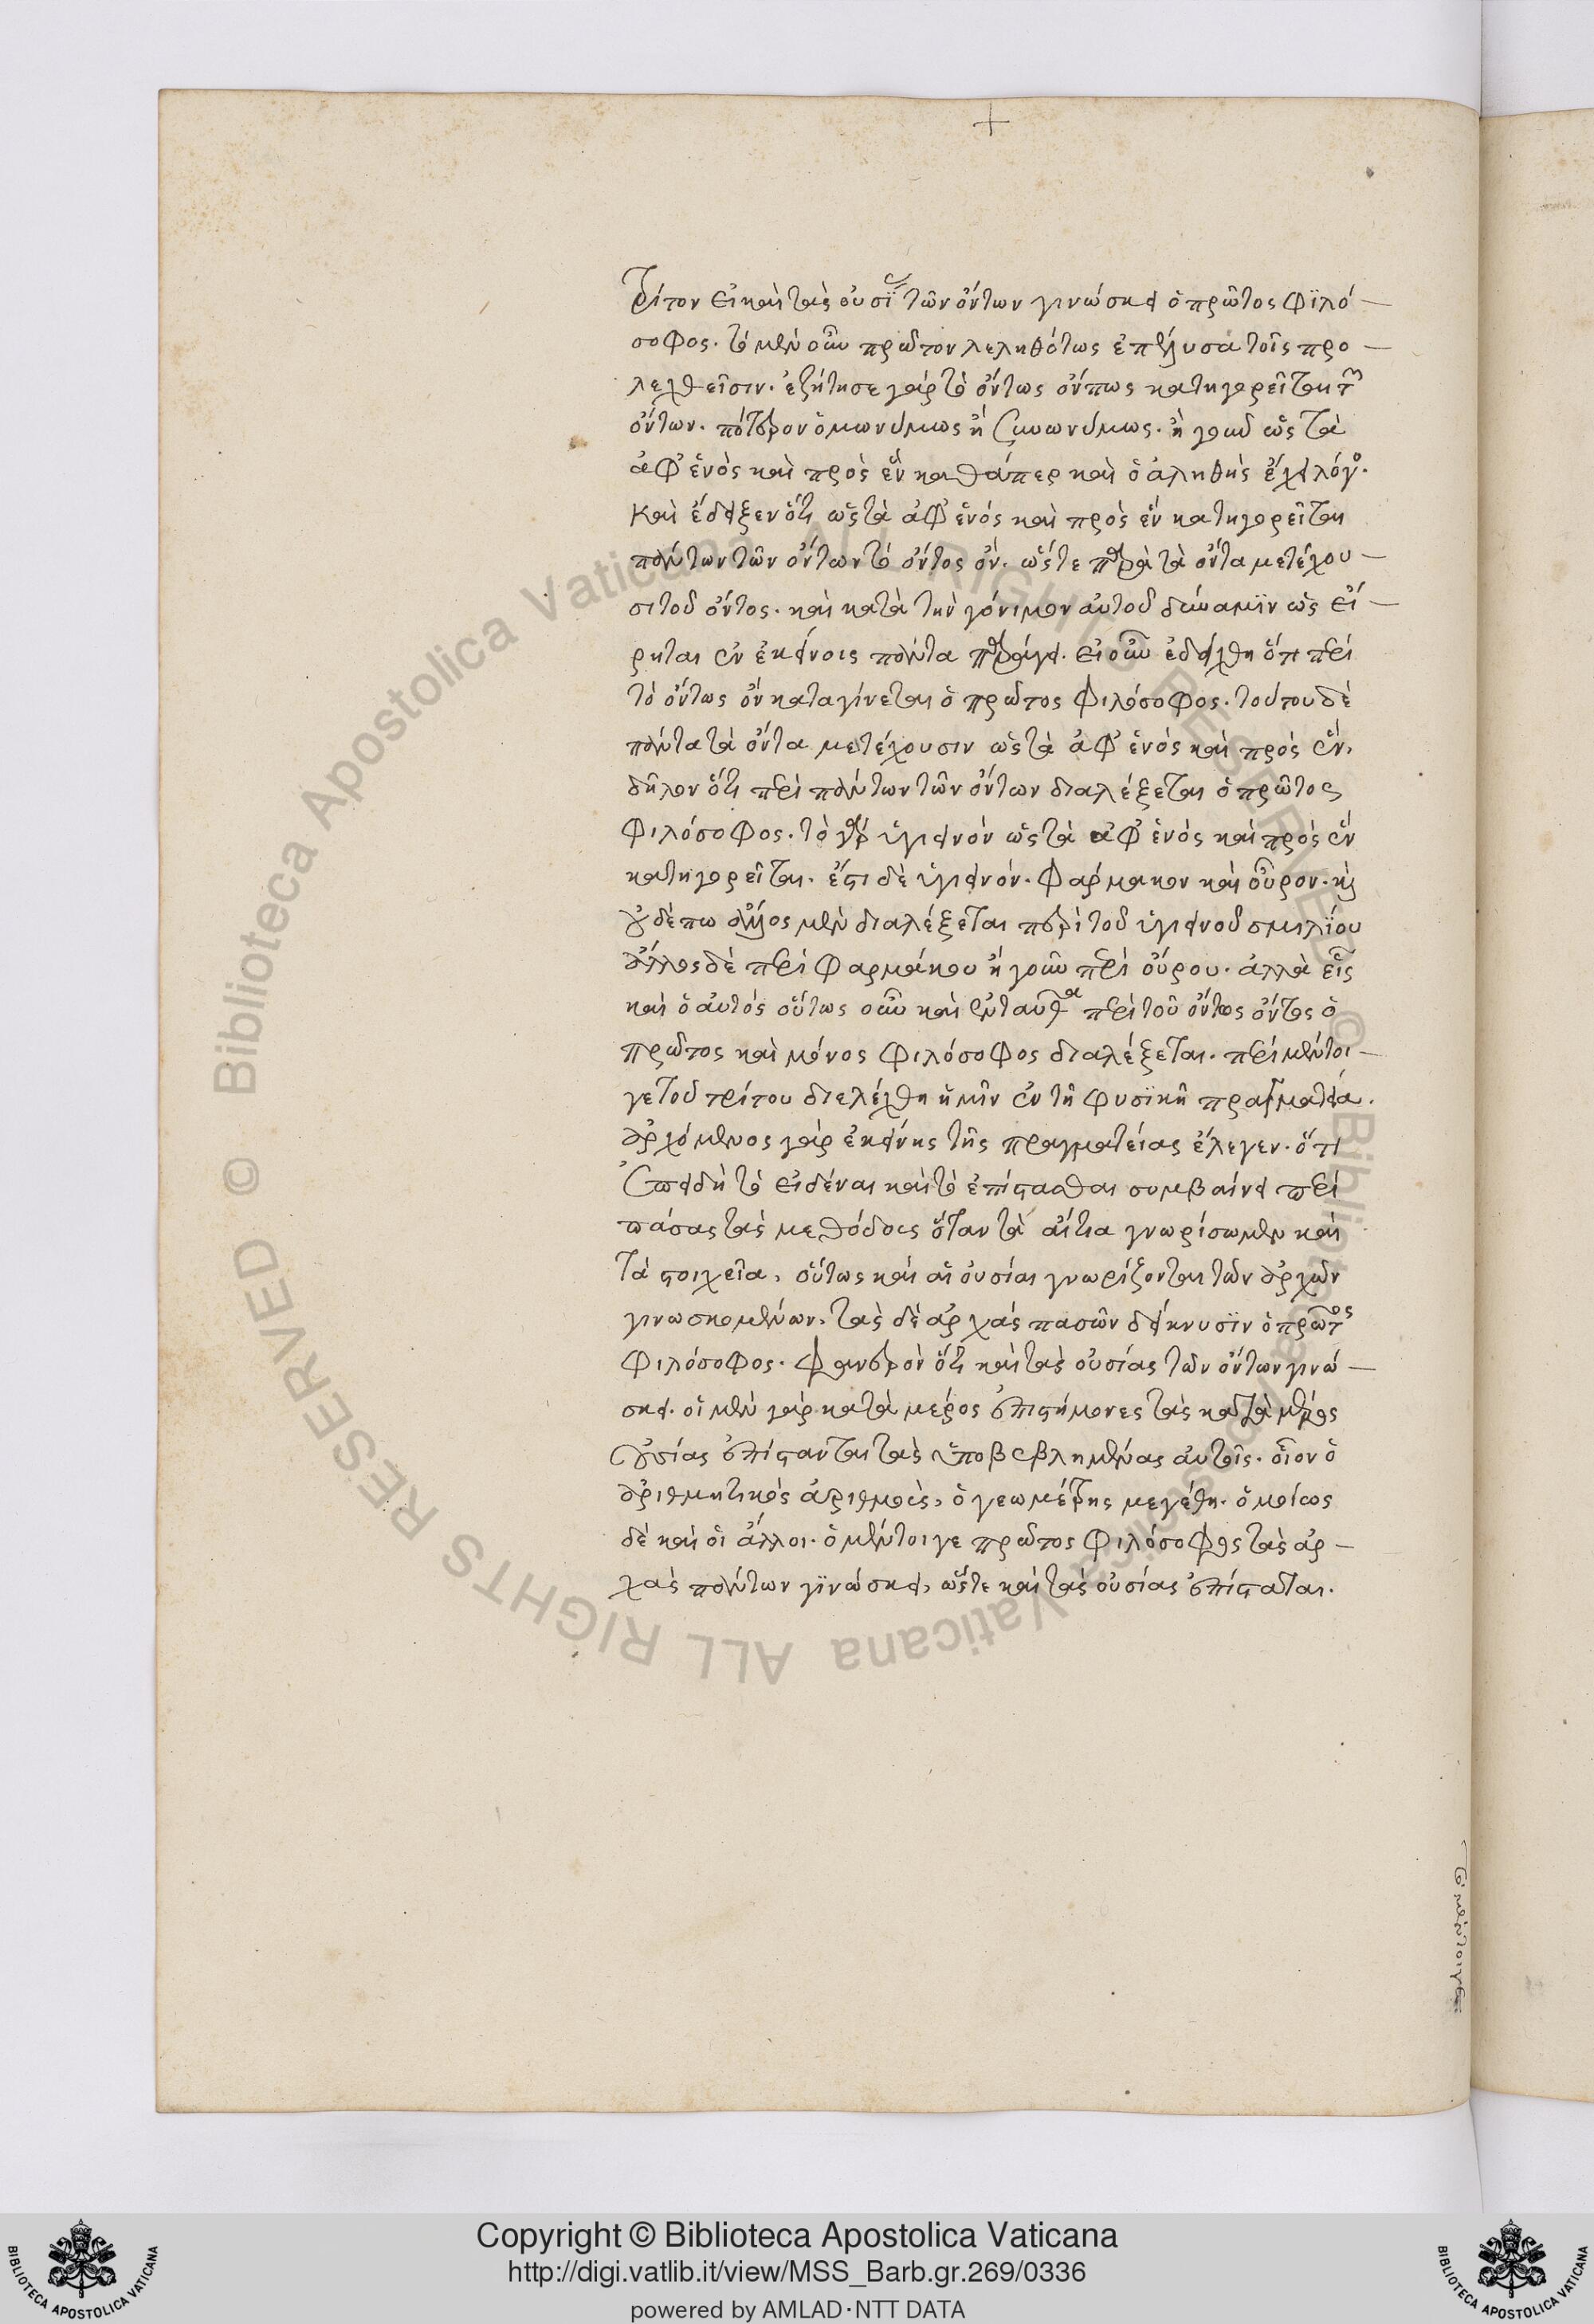 +
τρίτον εἰ καὶ τὰς οὐσίας τῶν ὄντων γινώσκει ὁ πρῶτος φϊλό-
σοφος. τὸ μὲν οὖν πρῶτον λεληθότως ἐπέλυσα τοῖς προ-
λεχθεῖσιν. ἐζήτησε γάρ τὸ ὄντως ὄν πως κατηγορεῖται τῶν
ὄντων. πότερον ὁμωνύμως ἢ συνωνύμως. ἢ γοῦν ὡς τὰ
ἀφ' ἑνὸς καὶ πρὸς ἓν καθάπερ καὶ ὁ ἀληθὴς ἔχει λόγος.
Καὶ ἔδειξεν ὅτι ὡς τὰ ἀφ' ἑνός καὶ πρὸς ἓν κατηγορεῖται
πάντων τῶν ὄντων τὸ ὄντος ὄν. ὥστε πάντα τὰ ὄντα μετέχου-
σι τοῦ ὄντος. καὶ κατὰ τὴν γόνιμον αὐτοῦ δύναμϊν ὡς εἴ-
ρηται ἐν ἐκείνοις πάντα παράγει. εἰ οὖν ἐδείχθη ὅτι περὶ
τὸ ὄντως ὂν καταγίνεται ὁ πρῶτος φιλόσοφος. τούτου δὲ
πάντα τὰ ὄντα μετέχουσιν ὡς τὰ ἀφ' ἑνός καὶ πρός ἕν,
δῆλον ὅτι περὶ πάντων τῶν ὄντων διαλέξεται ὁ πρῶτος
φιλόσοφος. τὸ γὰρ ὑγιεινόν ὡς τὰ ἀφ' ἑνός καὶ πρὸς ἓν
κατηγορεῖται. ἔστι δὲ ὑγιεινόν. φάρμακον καὶ οὖρον. καὶ
οὐ δέπω ἄλλος μὲν διαλέξεται περὶ τοῦ ὑγιεινοῦ σμιλΐου
ἄλλος δὲ περὶ φαρμάκου ἢ γοῦν περὶ οὔρου. ἀλλὰ εἷς
καὶ ὁ αὐτός οὕτως οὖν καὶ ἐνταῦθα περὶ τοῦ ὄντως ὄντος ὁ
πρῶτος καὶ μόνος φιλόσοφος διαλέξεται. περὶ μέντοι-
γε τοῦ τρίτου διελέχθη ἡμῖν ἐν τῇ φυσϊκῇ πραγματεία.
ἀρχόμενος γάρ ἐκείνης τῆς πραγματείας ἔλεγεν. ὅτι
ἐπειδὴ τὸ εἰδέναι καὶ τὸ ἐπίστασθαι συμβαίνει περὶ
πάσας τὰς μεθόδοις ὅταν τὰ αἴτια γνωρίσωμεν καὶ
τὰ στοιχεῖα, οὕτως καὶ αἱ οὐσίαι γνωρίζονται τῶν ἀρχῶν
γινωσκομένων, τὰς δὲ ἀρχάς πασῶν δείκνυσϊν ὁ πρῶτος
φιλόσοφος. φανερὸν ὅτι καὶ τὰς οὐσίας τῶν ὄντων γινώ-
σκει. οἱ μὲν γὰρ κατὰ μέρος ἐπιστήμονες τὰς κατὰ μέρος
οὐσίας ἐπίστανται τὰς ὑποβεβλημένας αὐτοῖς. οἷον ὁ
ἀριθμητικὸς ἀριθμοὺς, ὁ γεωμέτρης μεγέθη. ὁμοίως
δὲ καὶ οἱ ἄλλοι. ὁ μέντοιγε πρῶτος φιλόσοφος τὰς ἀρ-
χὰς πάντων γϊνώσκει, ὥστε καὶ τὰς οὐσίας ἐπίσταται.
τὸ μέντοιγε
© Biblioteca Apostolica Vaticana ALL RIGHTS RESERVED © Biblioteca Apostolica Vaticana ALL RIGHTS RESERVED
Copyright © Biblioteca Apostolica Vaticana
http://digi.vatlib.it/view/MSS_Barb.gr.269/0336
powered by AMLAD·NTT DATA
BIBLIOTECA APOSTOLICA VATICANA
BIBLIOTECA APOSTOLICA VATICANA